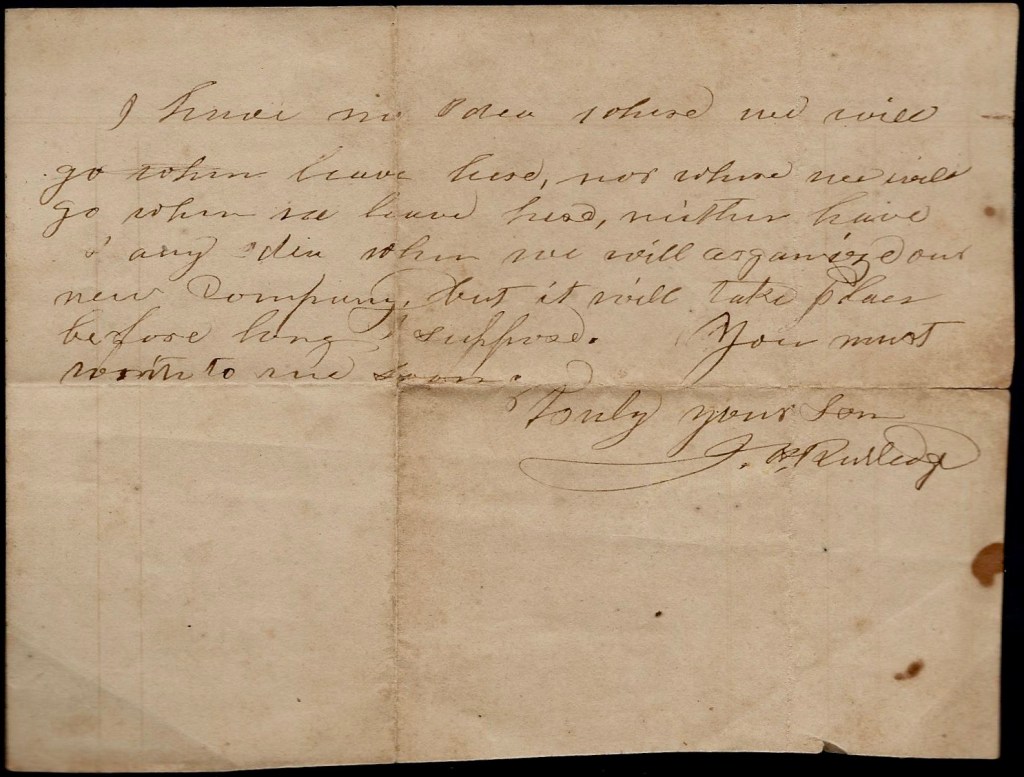 I have no Idea where we will
go when leave here, nor where we will
go when we leave here, neither have
I any Idea when we will organize our
new Company, but it will take place
before long I suppose. You must
write to me soon.
Truly your Son
J. Rutledge